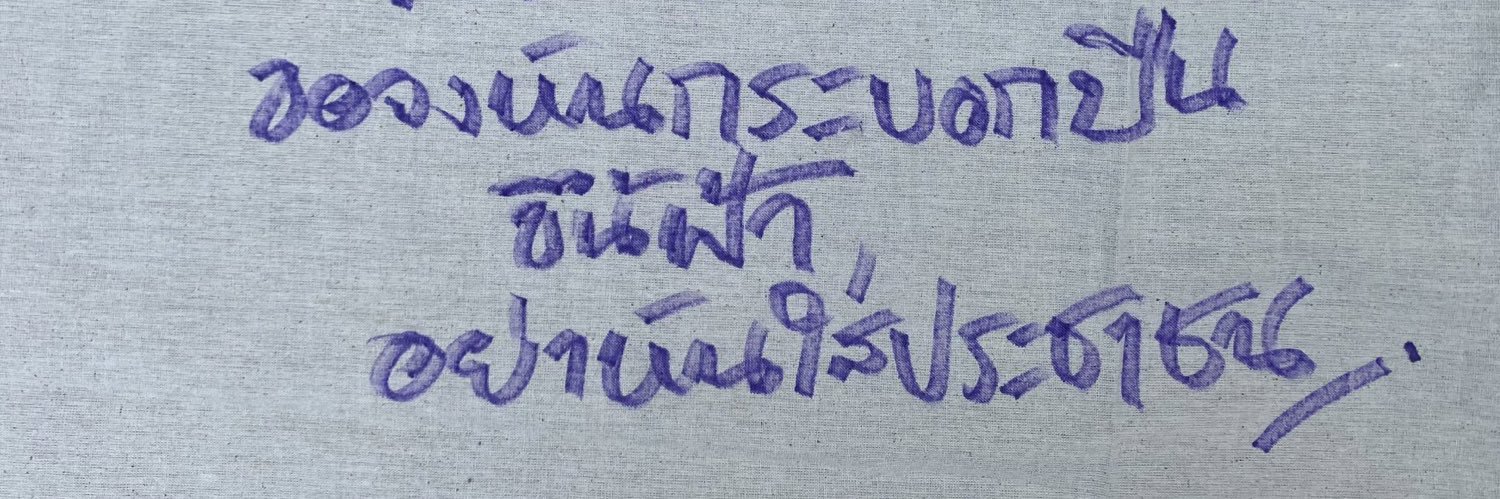 ขอจงหันกระบอกปืน
ขึ้นฟ้า
อย่าหันใส่ประชาชน